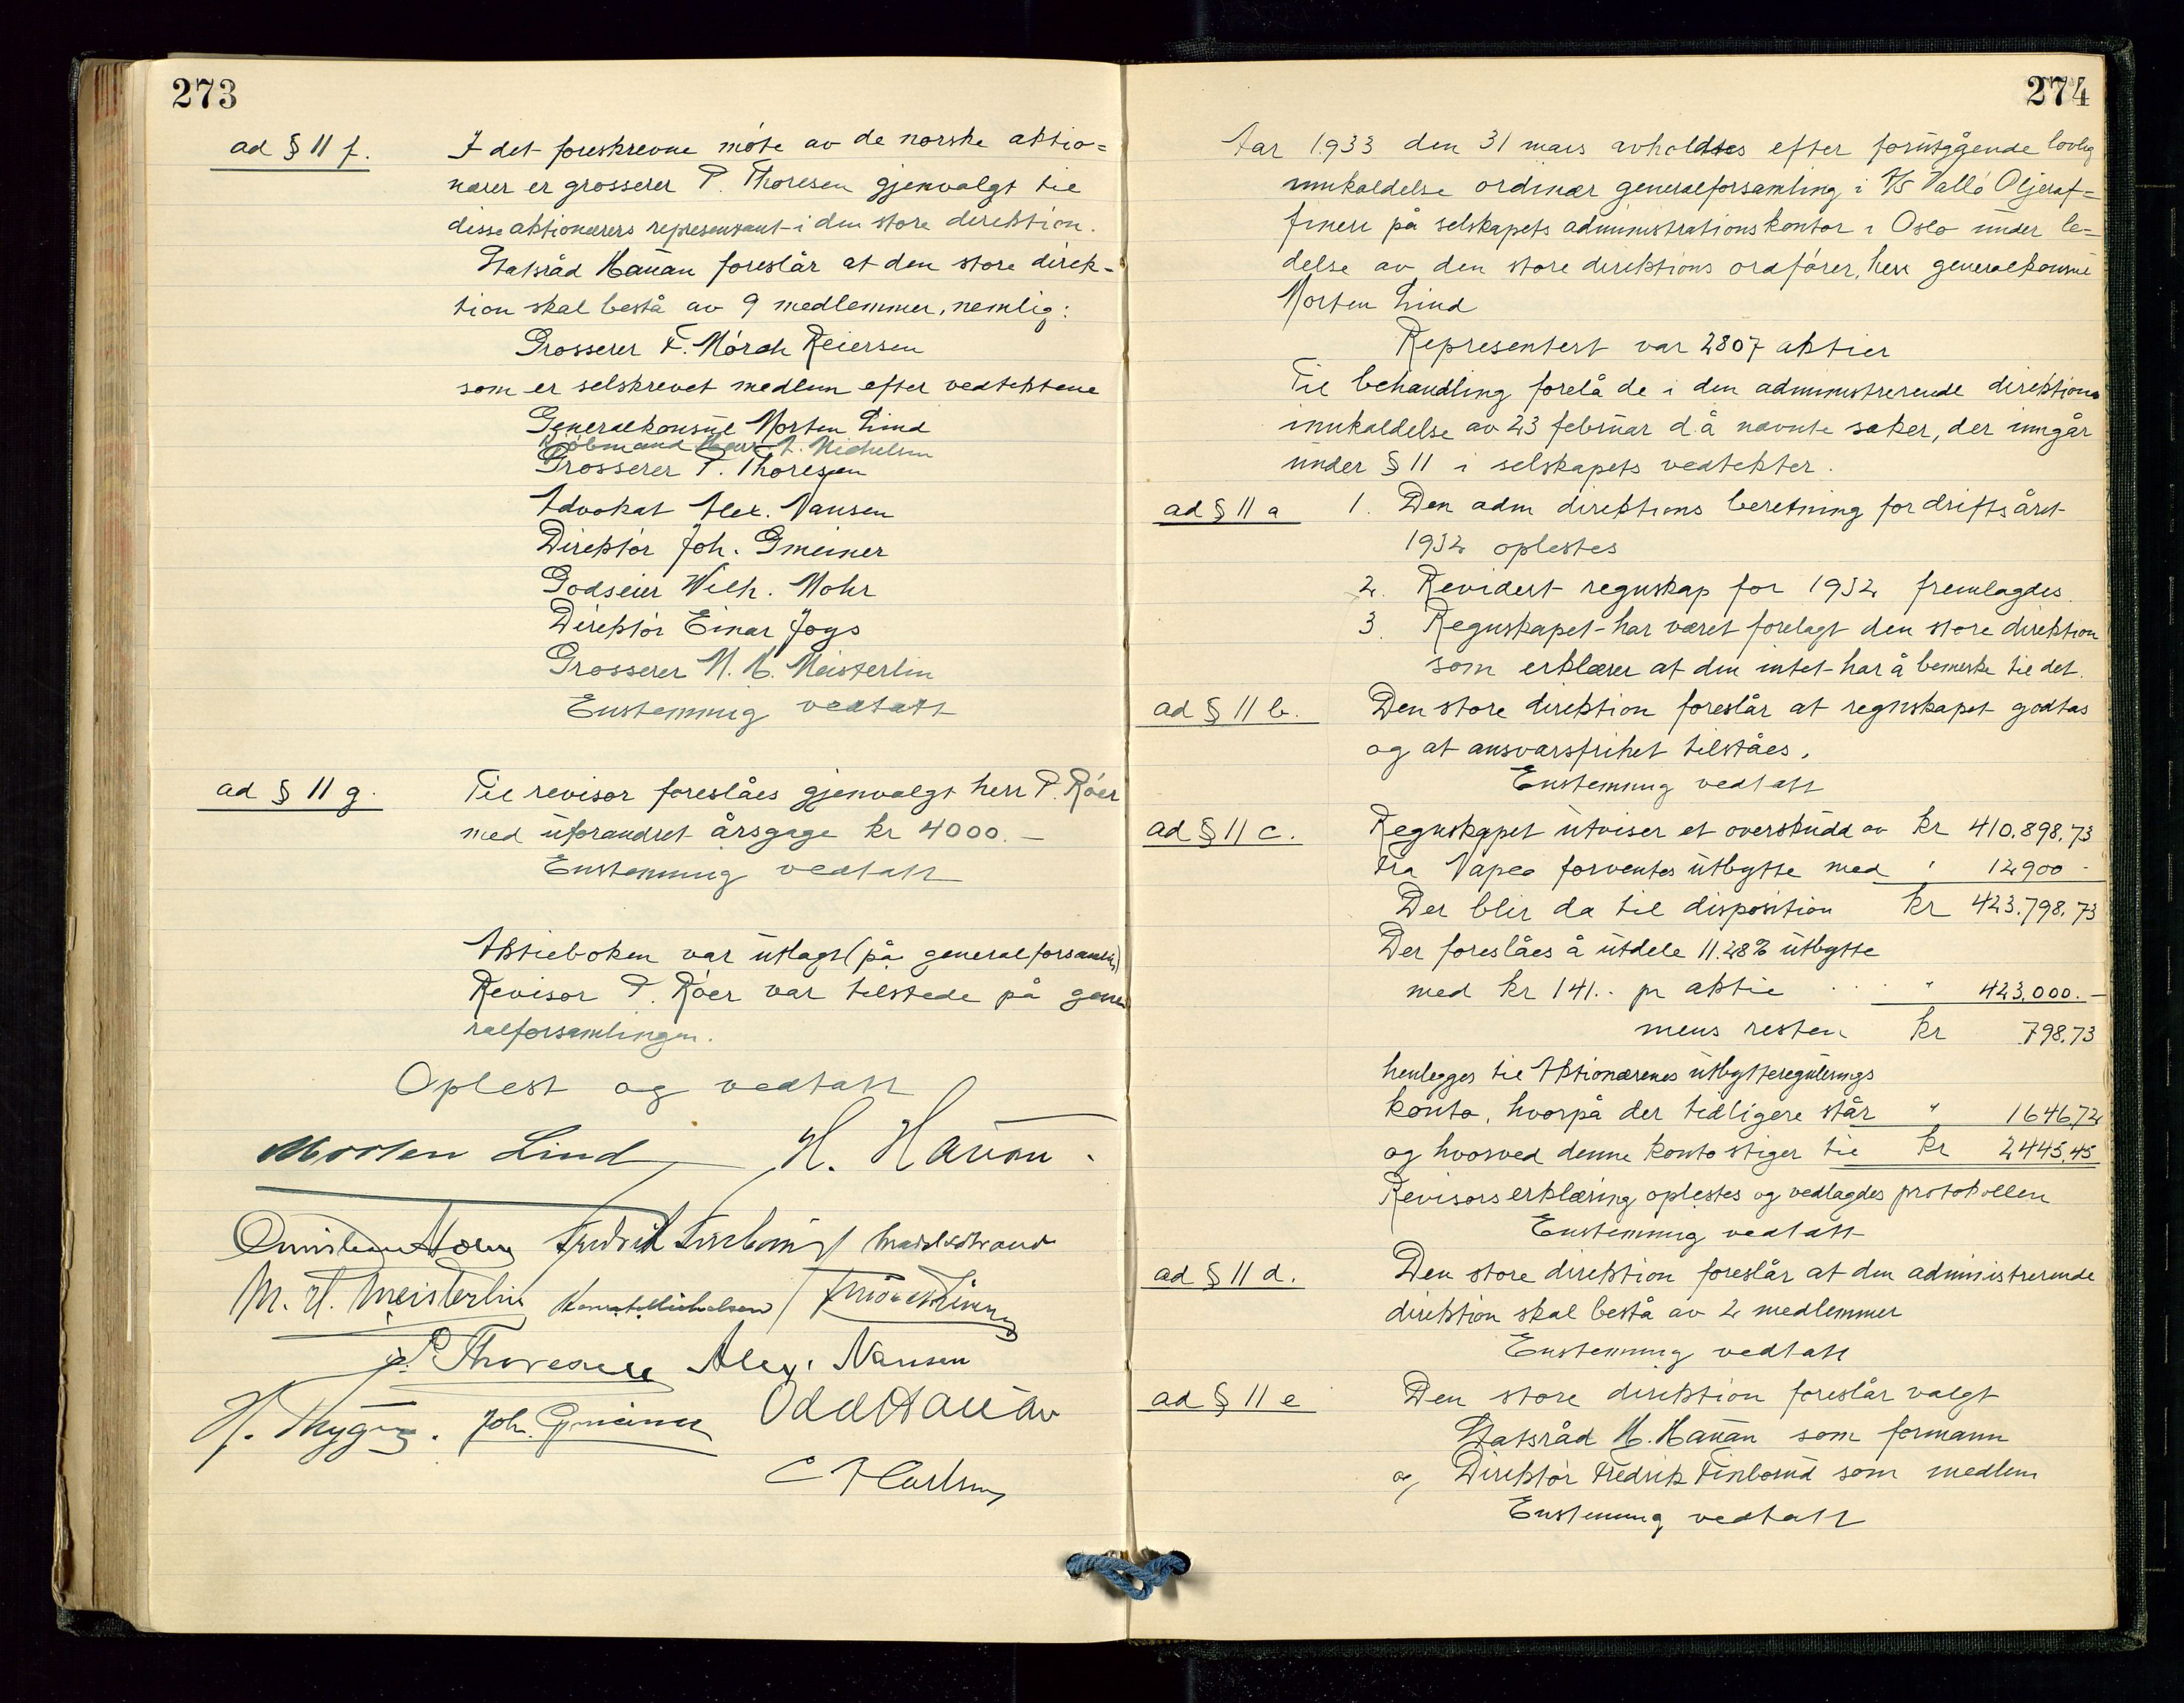 273
ad § 11 f. I det foreskrevne møte av de norske aktio=
nærer er grosserer P. Thoresen gjenvalgt til
disse aktionærers representant i den store direktion.
Statsråd Hauan foreslår at den store direk-
tion skal bestå av 9 medlemmer, nemlig:
Grosserer F. Mørch Reiersen
som er selskrevet medlem efter vedtektene
Generalkonsul Morten Lind
Kjøbmand A. Michelsen
Grosserer P. Thoresen
Advokat Alex. Nansen
Direktør Joh. Gmeiner
Godseier Wilh. Mohr
Direktør Einar Joys
Grosserer M. H. Meisterlin
Enstemmig vedtatt
ad § 11 g. Til revisor foreslåes gjenvalgt herr P. Røer
med uforandret årsgage kr 4000.-
Enstemmig vedtatt
Aktieboken var utlagt (på generalforsamlg)
Revisor P. Røer var tilstede på gene
ralforsamlingen.
Oplest og vedtatt
Morten Lind H. Hauan.
Fredrik
M. H. Meisterlin
P. Thoresen Alex. Nansen
H. Joh. Gmeiner Odd Hauan
274
Aar 1933 den 31 mars avholdtes efter forutgående lovlig
innkaldelse ordinær generalforsamling i A/S Vallø Oljeraf=
fineri på selskapets administrationskontor i Oslo under le=
delse av den store direktions ordfører, herr generalkonsul
Morten Lind
Representert var 2807 aktier
Til behandling forelå de i den administrerende direktions
innkaldelse av 23 februar d.å nævnte saker, der inngår
under § 11 i selskapets vedtekter.
ad § 11 a 1. Den adm direktions beretning for driftsåret
1932 oplestes
2. Revidert regnskap for 1932 fremlagdes.
3. Regnskapet har været forelagt den store direktion
som erklærer at den intet har å bemerke til det.
ad § 11 b. Den store direktion foreslår at regnskapet godtas
og at ansvarsfrihet tilståes.
Enstemmig vedtatt
ad § 11 c. Regnskapet utviser et overskudd av kr 410.898,73
Fra Vapco forventes utbytte med " 12900 -
Der blir da til disposition kr 423.798,73
Der foreslåes å utdele 11.28% utbytte
med kr 141.- pr aktie " 423.000.-
mens resten kr 798,73
henlegges til Aktionærenes utbytteregulerings
konto, hvorpå der tidligere står " 1646,72
og hvorved denne konto stiger til kr 2445,45
Revisors erklæring oplestes og vedlagdes protokollen
Enstemmig vedtatt
ad § 11 d. Den store direktion foreslår at den administrerende
direktion skal bestå av 2 medlemmer
Enstemmig vedtatt
ad § 11 e Den store direktion foreslår valgt
Statsråd H. Hauan som formann
og Direktør Fredrik Finborud som medlem
Enstemmig vedtatt